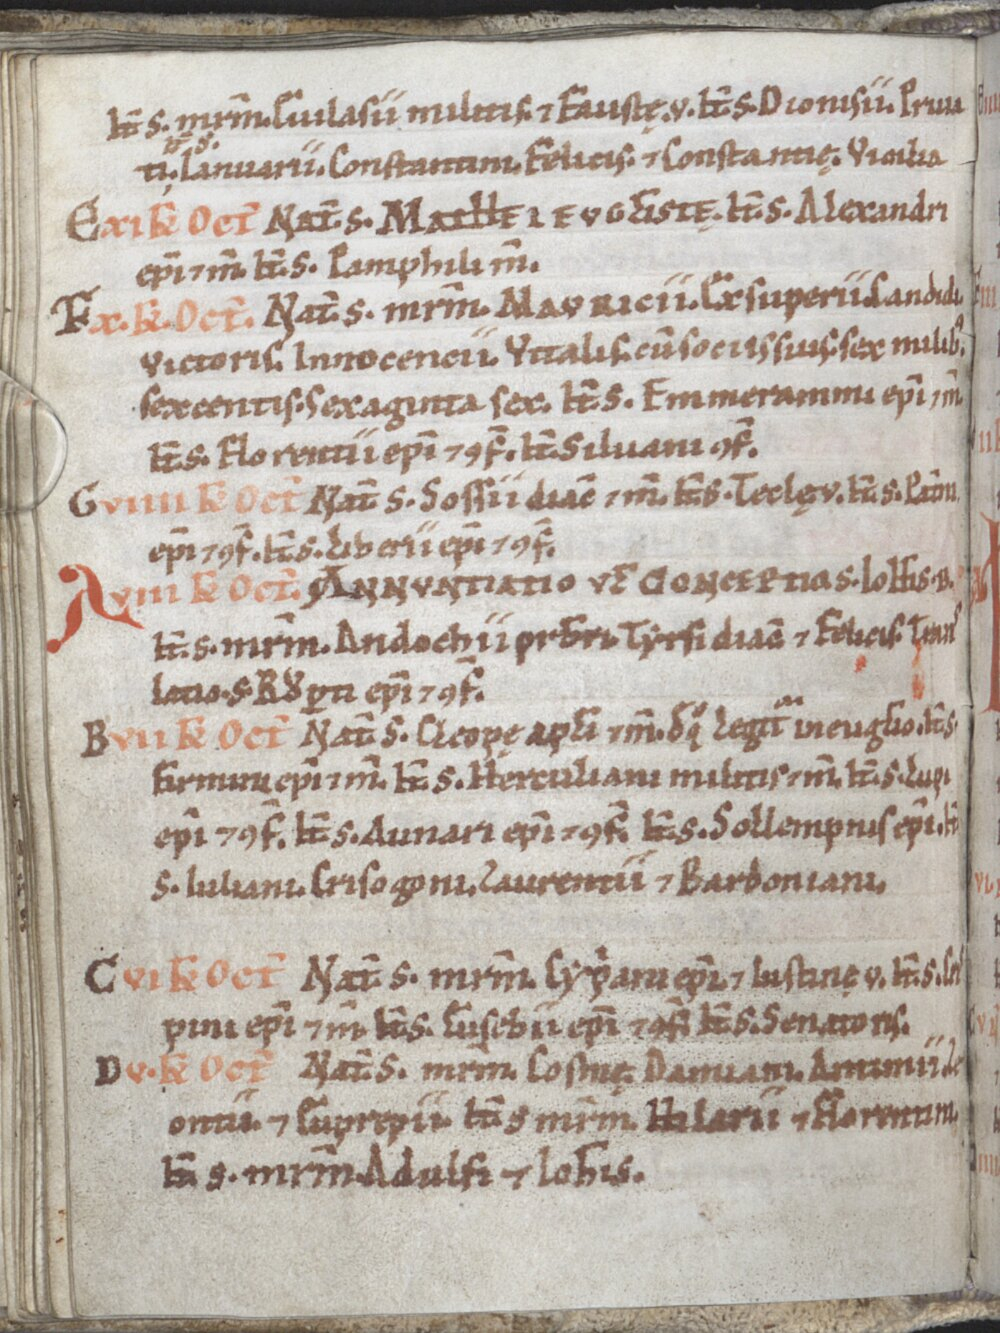 It̄. s. mr̄m. Euilasii militis. ⁊ Faustę. v. It̄. s. Dionisii. Priua
ti. Ianuarii. Constantini. Felicis. ⁊ Constantię. Vigilia
E xi kł Oct̄ Nat̄. s. Mathei eugl̄istę. It̄. s. Alexandri
ep̄i ⁊ m̄. It̄. s. Pamphili m̄.
F x. kł. Oct̄. Nat̄. s. mr̄m. Mauricii. Exsuperii. Candidi.
Victoris. Innocencii. Vitalis. cū sociis suis. sex milib;
sexcentis. sexaginta sex. It̄. s. Emmerammi ep̄i ⁊ m̄.
It̄. s. Florentii ep̄i ⁊ ꝯf̄. It̄. Siluani ꝯf̄.
G viiii kł Oct̄ Nat̄ s. Sossii diac̄ ⁊ m̄. It̄. s. Teclę v. It̄. s.
ep̄i ⁊ ꝯf̄. It̄. s. Liberii ep̄i ⁊ ꝯf̄.
A viii kł Oct̄. Annuntiatio vł Conceptio s. Ioh̄is. B.
It̄. s. mr̄m. Andochii prb̄ri. Tyrsi diac̄ ⁊ Felicis. Trans
latio. s. Rŏpti ep̄i ⁊ ꝯf̄.
B vii kł Oct̄ Nat̄. s. Cleopę apl̄i ⁊ m̄. d̄ q̄ legit̄ in euglio. It̄. s.
Firmini ep̄i ⁊ m̄. It̄. s. Herculiani militis ⁊ m̄. It̄. s. Lupi
ep̄i ⁊ ꝯf̄. It̄. s. Aunari ep̄i ⁊ ꝯf̄. It̄. s. Sollempnis ep̄i. It̄
s. Iuliani. Crisogoni. Laurentii ⁊ Bardoniani.
C vi kł Oct̄ Nat̄. s. mr̄m. Cypͥani ep̄i. ⁊ Iustinę v. It̄. s.
pini ep̄i ⁊ m̄. It̄. s. Eusebii ep̄i ⁊ ꝯf̄ It̄. s. Senatoris.
D v. kł Oct̄ Nat̄. s. mr̄m. Cosmę. Damiani. Antimii. Le
ontii. ⁊ Euprepii. It̄. s mr̄m. Hilarii ⁊ Florentini.
It̄ s. mr̄m. Adulfi ⁊ Ioh̄is.